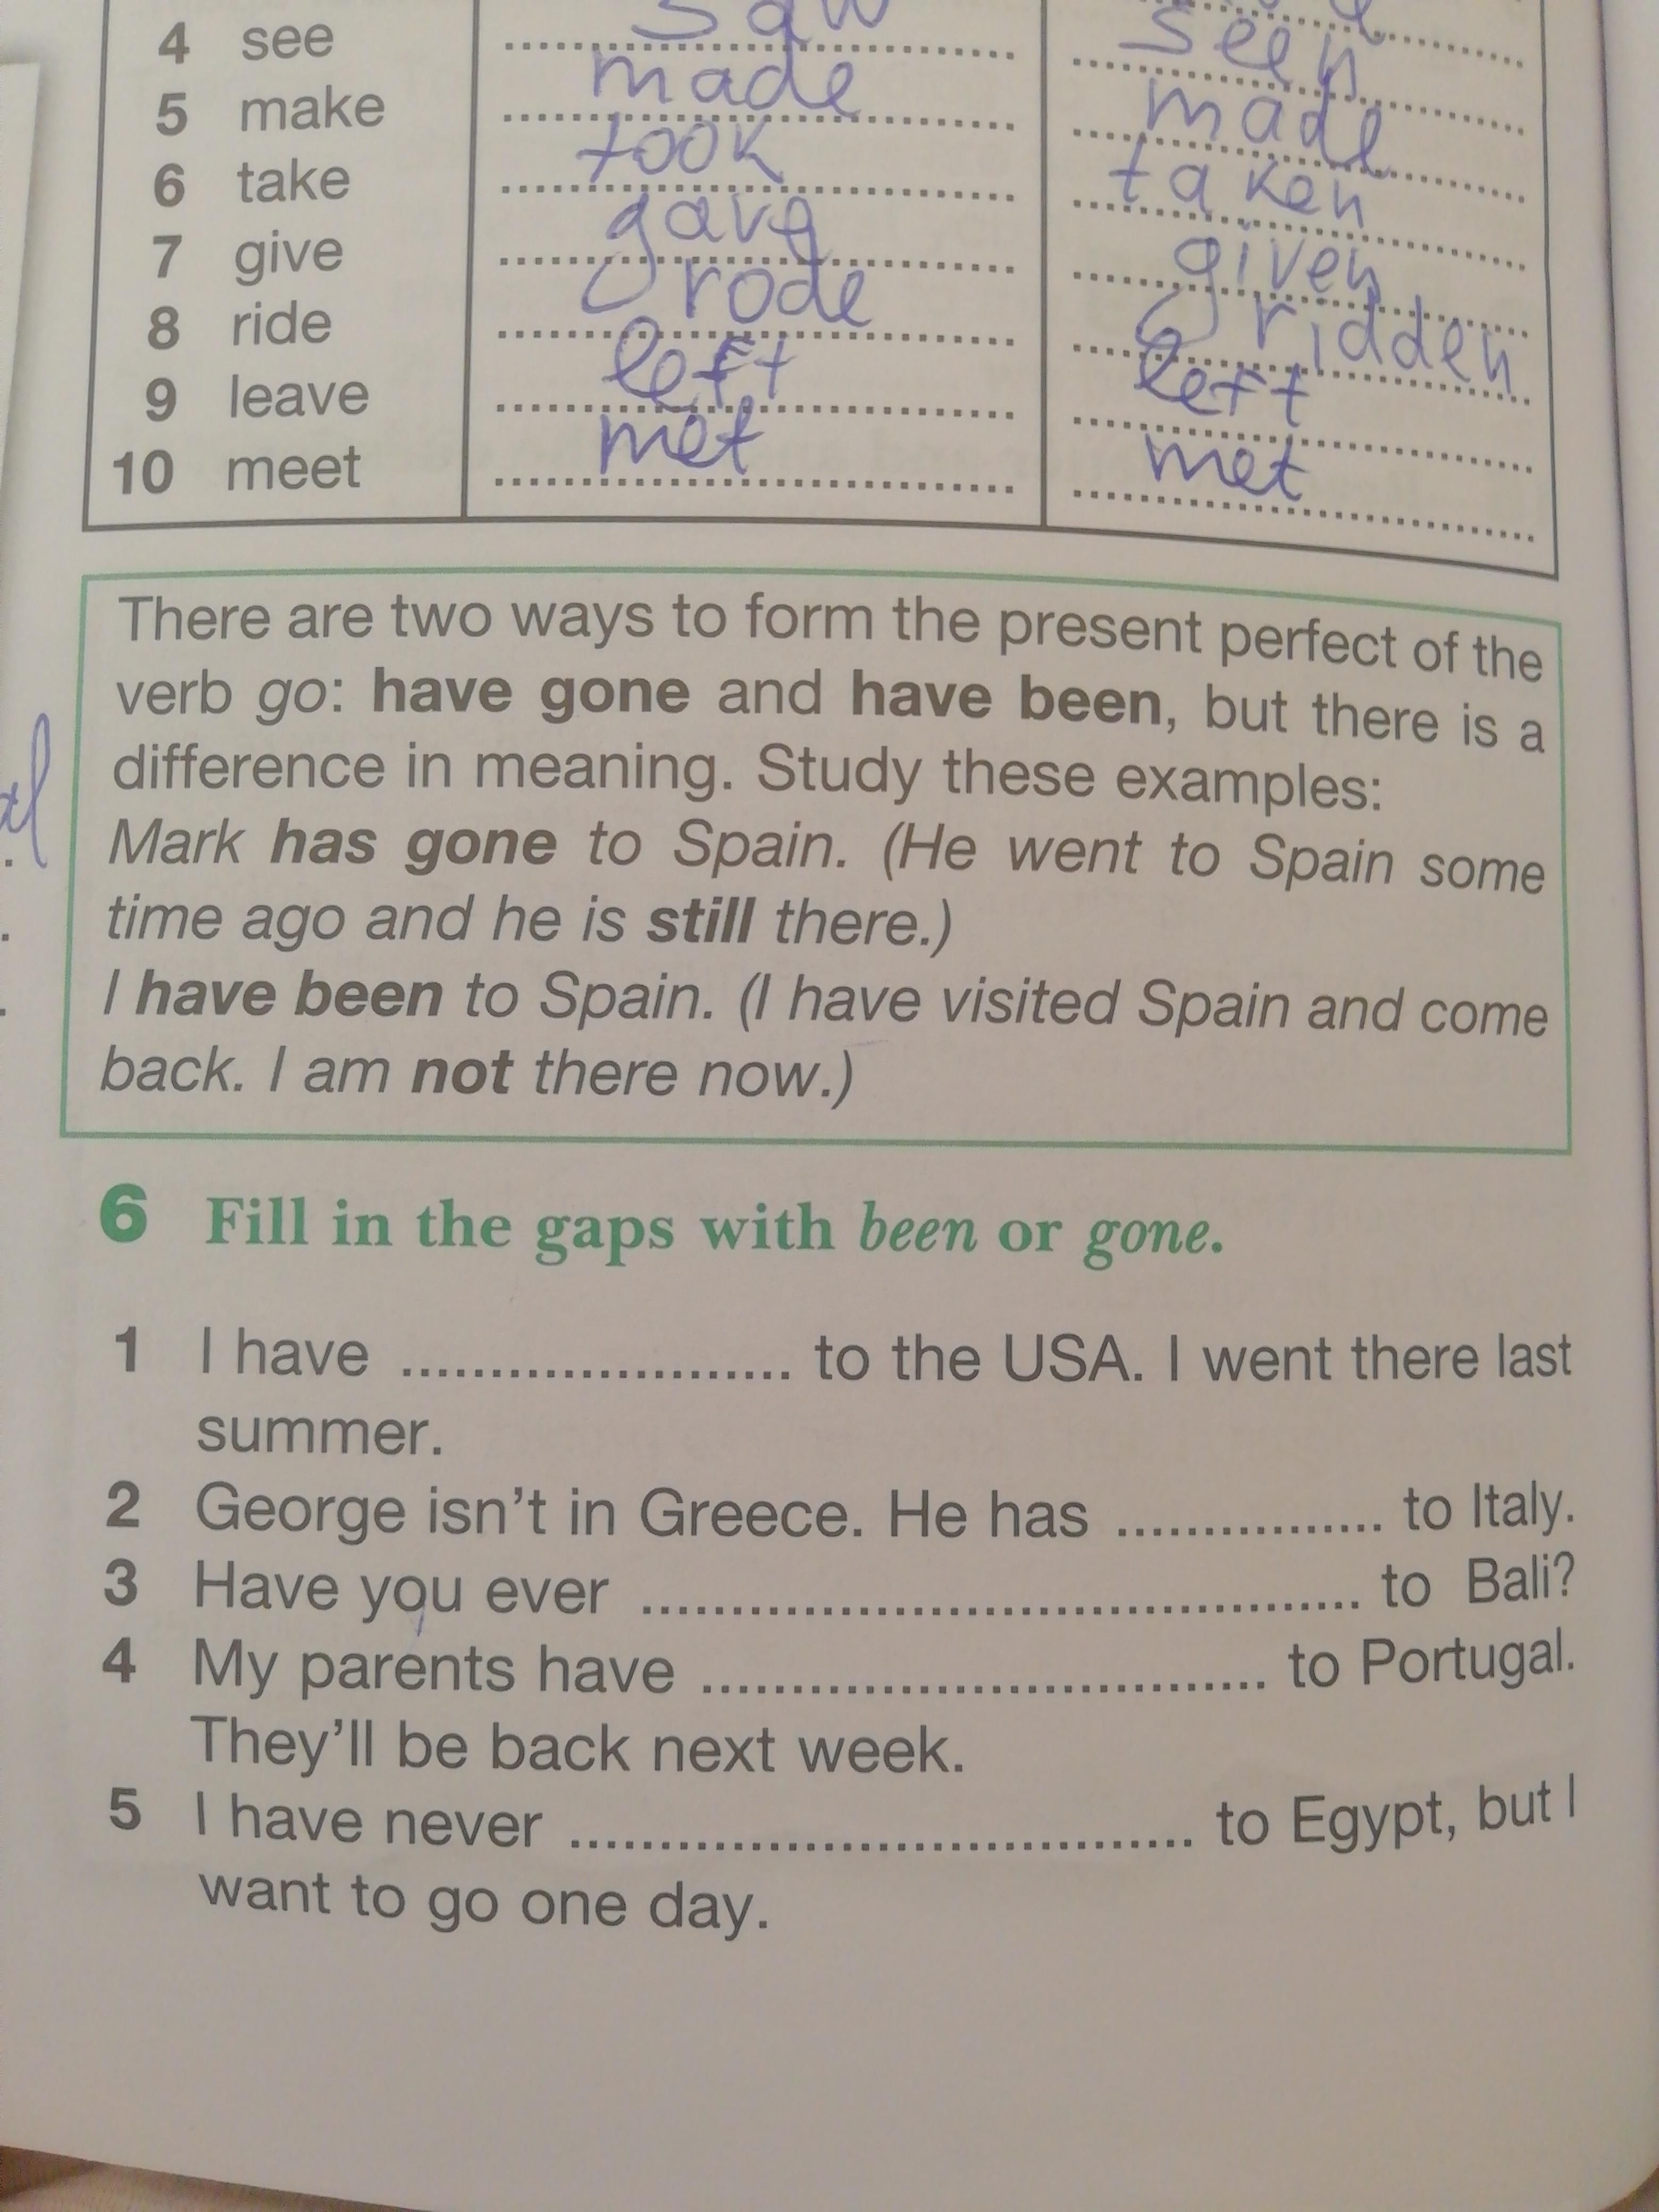 4 see saw seen
5 make made made
6 take took taken
7 give gave given
8 ride rode ridden
9 leave left left
10 meet met met
There are two ways to form the present perfect of the
verb go: have gone and have been, but there is a
difference in meaning. Study these examples:
Mark has gone to Spain. (He went to Spain some
time ago and he is still there.)
I have been to Spain. (I have visited Spain and come
back. I am not there now.)
6 Fill in the gaps with been or gone.
1 I have ........................... to the USA. I went there last
summer.
2 George isn't in Greece. He has .................. to Italy.
3 Have you ever .................................................. to Bali?
4 My parents have ....................................... to Portugal.
They'll be back next week.
5 I have never ........................................... to Egypt, but I
want to go one day.